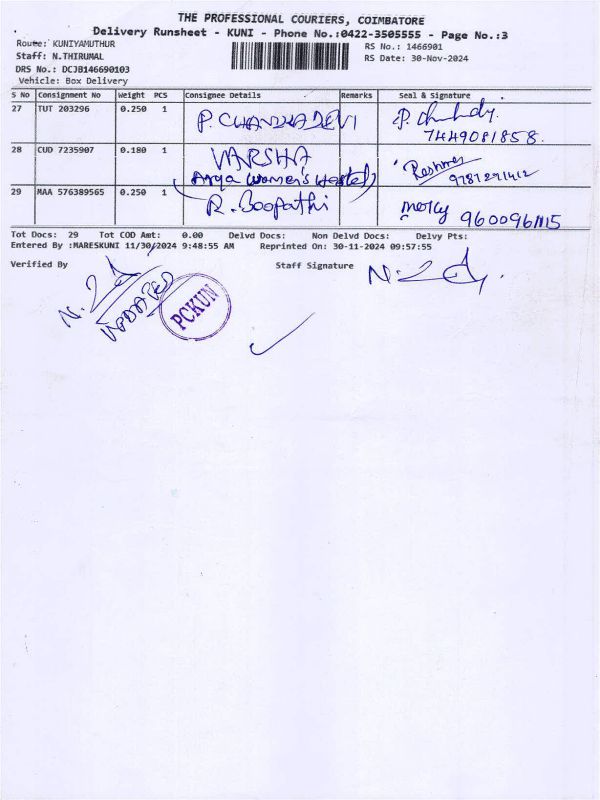 THE PROFESSIONAL COURIERS, COIMBATORE
Delivery Runsheet - KUNI - Phone No.:0422-3505555 - Page No.:3
Route: KUNIYAMUTHUR
RS No.: 1466901
Staff: N.THIRUMAL
RS Date: 30-Nov-2024
DRS No.: DCJB146690103
Vehicle: Box Delivery
S No Consignment No Weight PCS Consignee Details Remarks Seal & Signature
27 TUT 203296 0.250 1 P. CHANDRADEVI
7449081858.
28 CUD 7235907 0.180 1 VARSHA
(Arya Women's Hostel) Reshma
9787291412
29 MAA 576389565 0.250 1 R. Boopathi mercy
Tot Docs: 29 Tot COD Amt: 0.00 Delvd Docs: Non Delvd Docs: Delvy Pts:
Entered By :MARESKUNI 11/30/2024 9:48:55 AM Reprinted On: 30-11-2024 09:57:55
Verified By Staff Signature
UPDATED
PCKUN